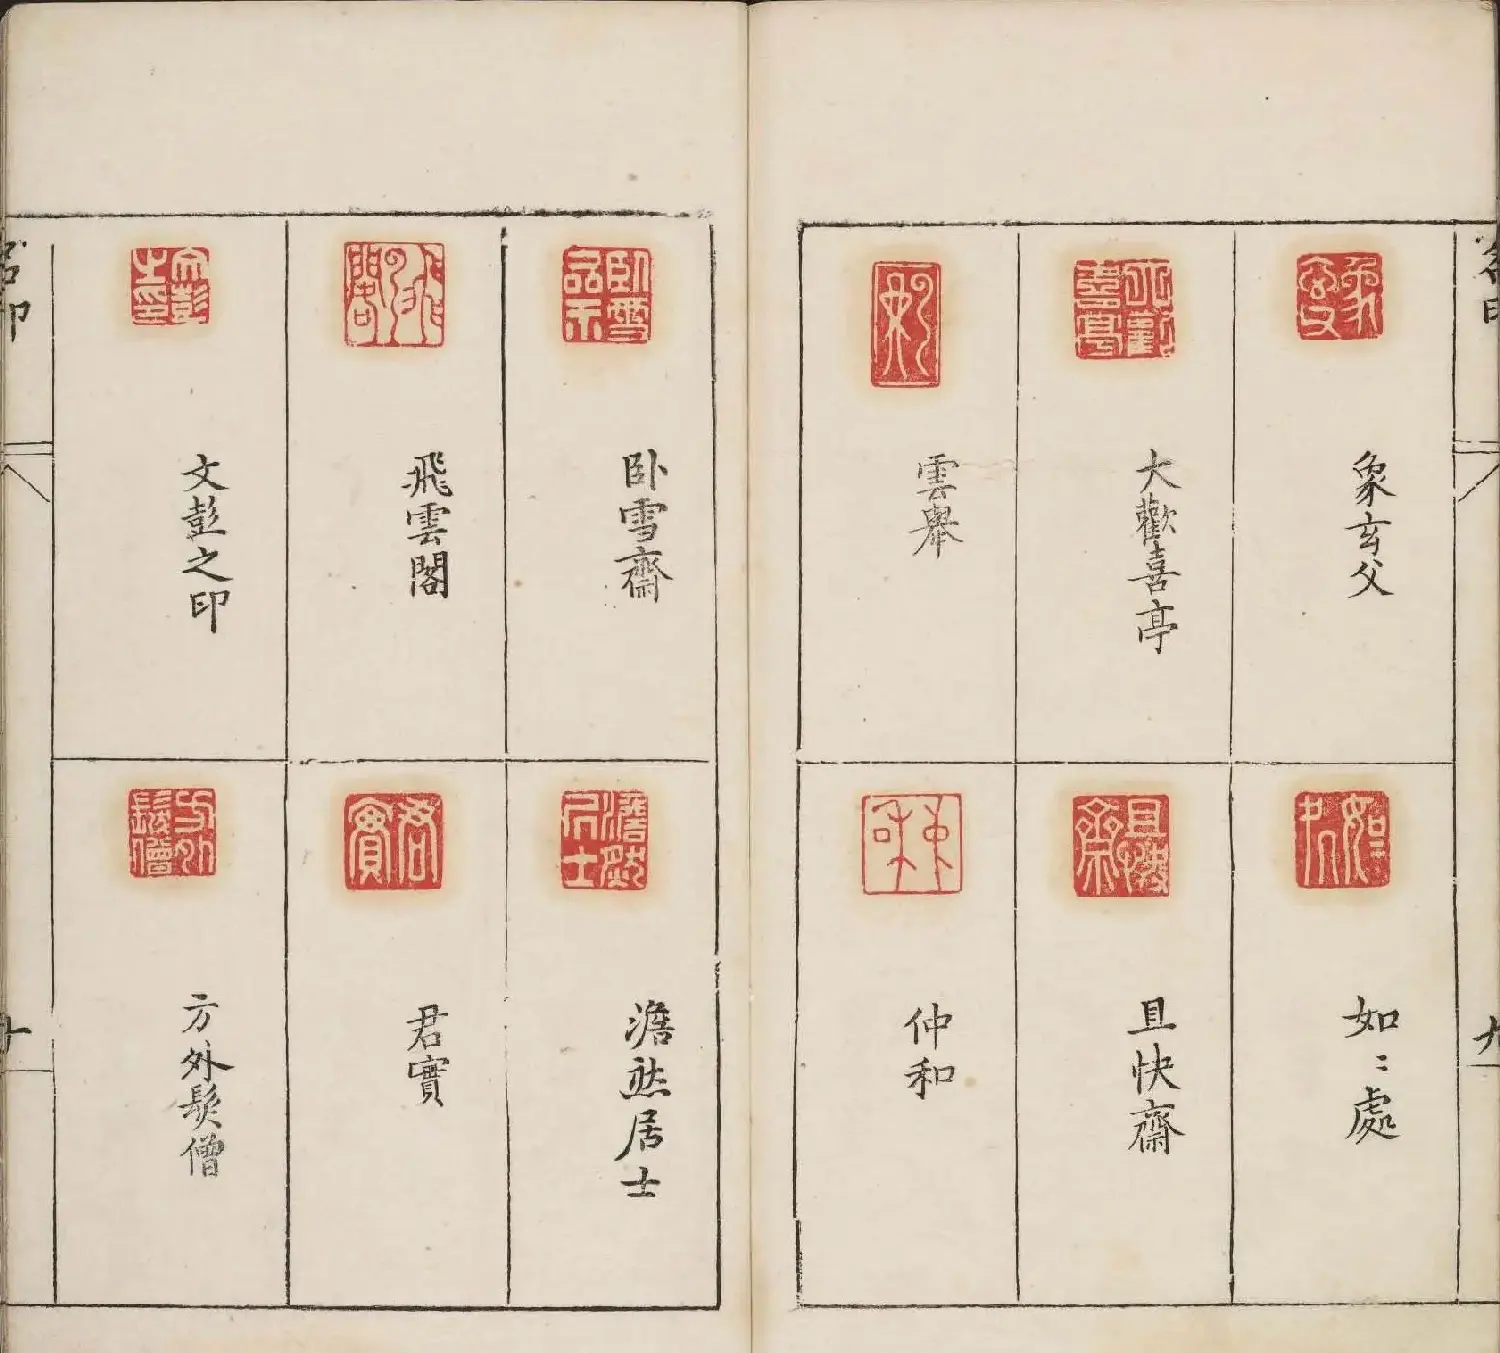 象玄父
如〻處
大歡喜亭
且快齋
雲舉
仲和
九
卧雪齋
澹然居士
飛雲閣
君實
文彭之印
方外髮僧
十